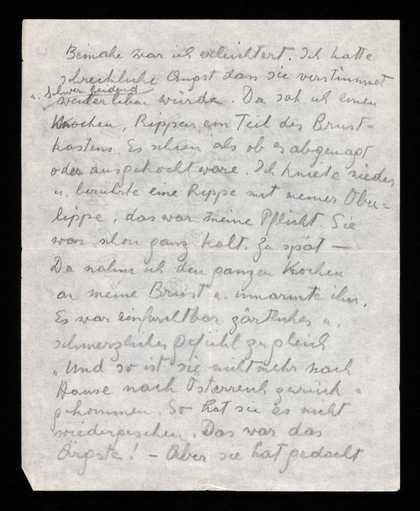 Beinahe war ich erleichtert. Ich hatte
schreckliche Angst dass sie verstümmet
u. schwer leidend
weiter leben würde. Da sah ich einen
Knochen, Rippen, ein Teil des Brust-
kastens. Es schien als ob es abgenagt
oder ausgekocht ware. Ich kniete nieder
u. berührte eine Rippe mit meiner Ober-
lippe, das war meine Pflicht. Sie
war schon ganz kalt. Zu spät —
Da nahm ich den ganzen Knochen
an meine Brust u. umarmte ihn.
Es war ein furchtbar zärtliches u.
schmerzliches Gefühl zugleich
"Und so ist sie nicht mehr nach
Hause nach Österreich zurück
gekommen. So hat sie es nicht
wiedergesehen. Das war das
Ärgste! – Aber sie hat gedacht